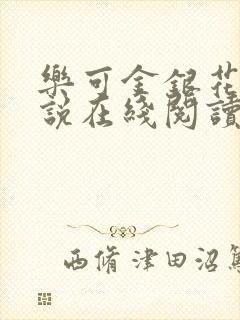 樂可金銀花
說在綫閱讀
西脩津田沼篤